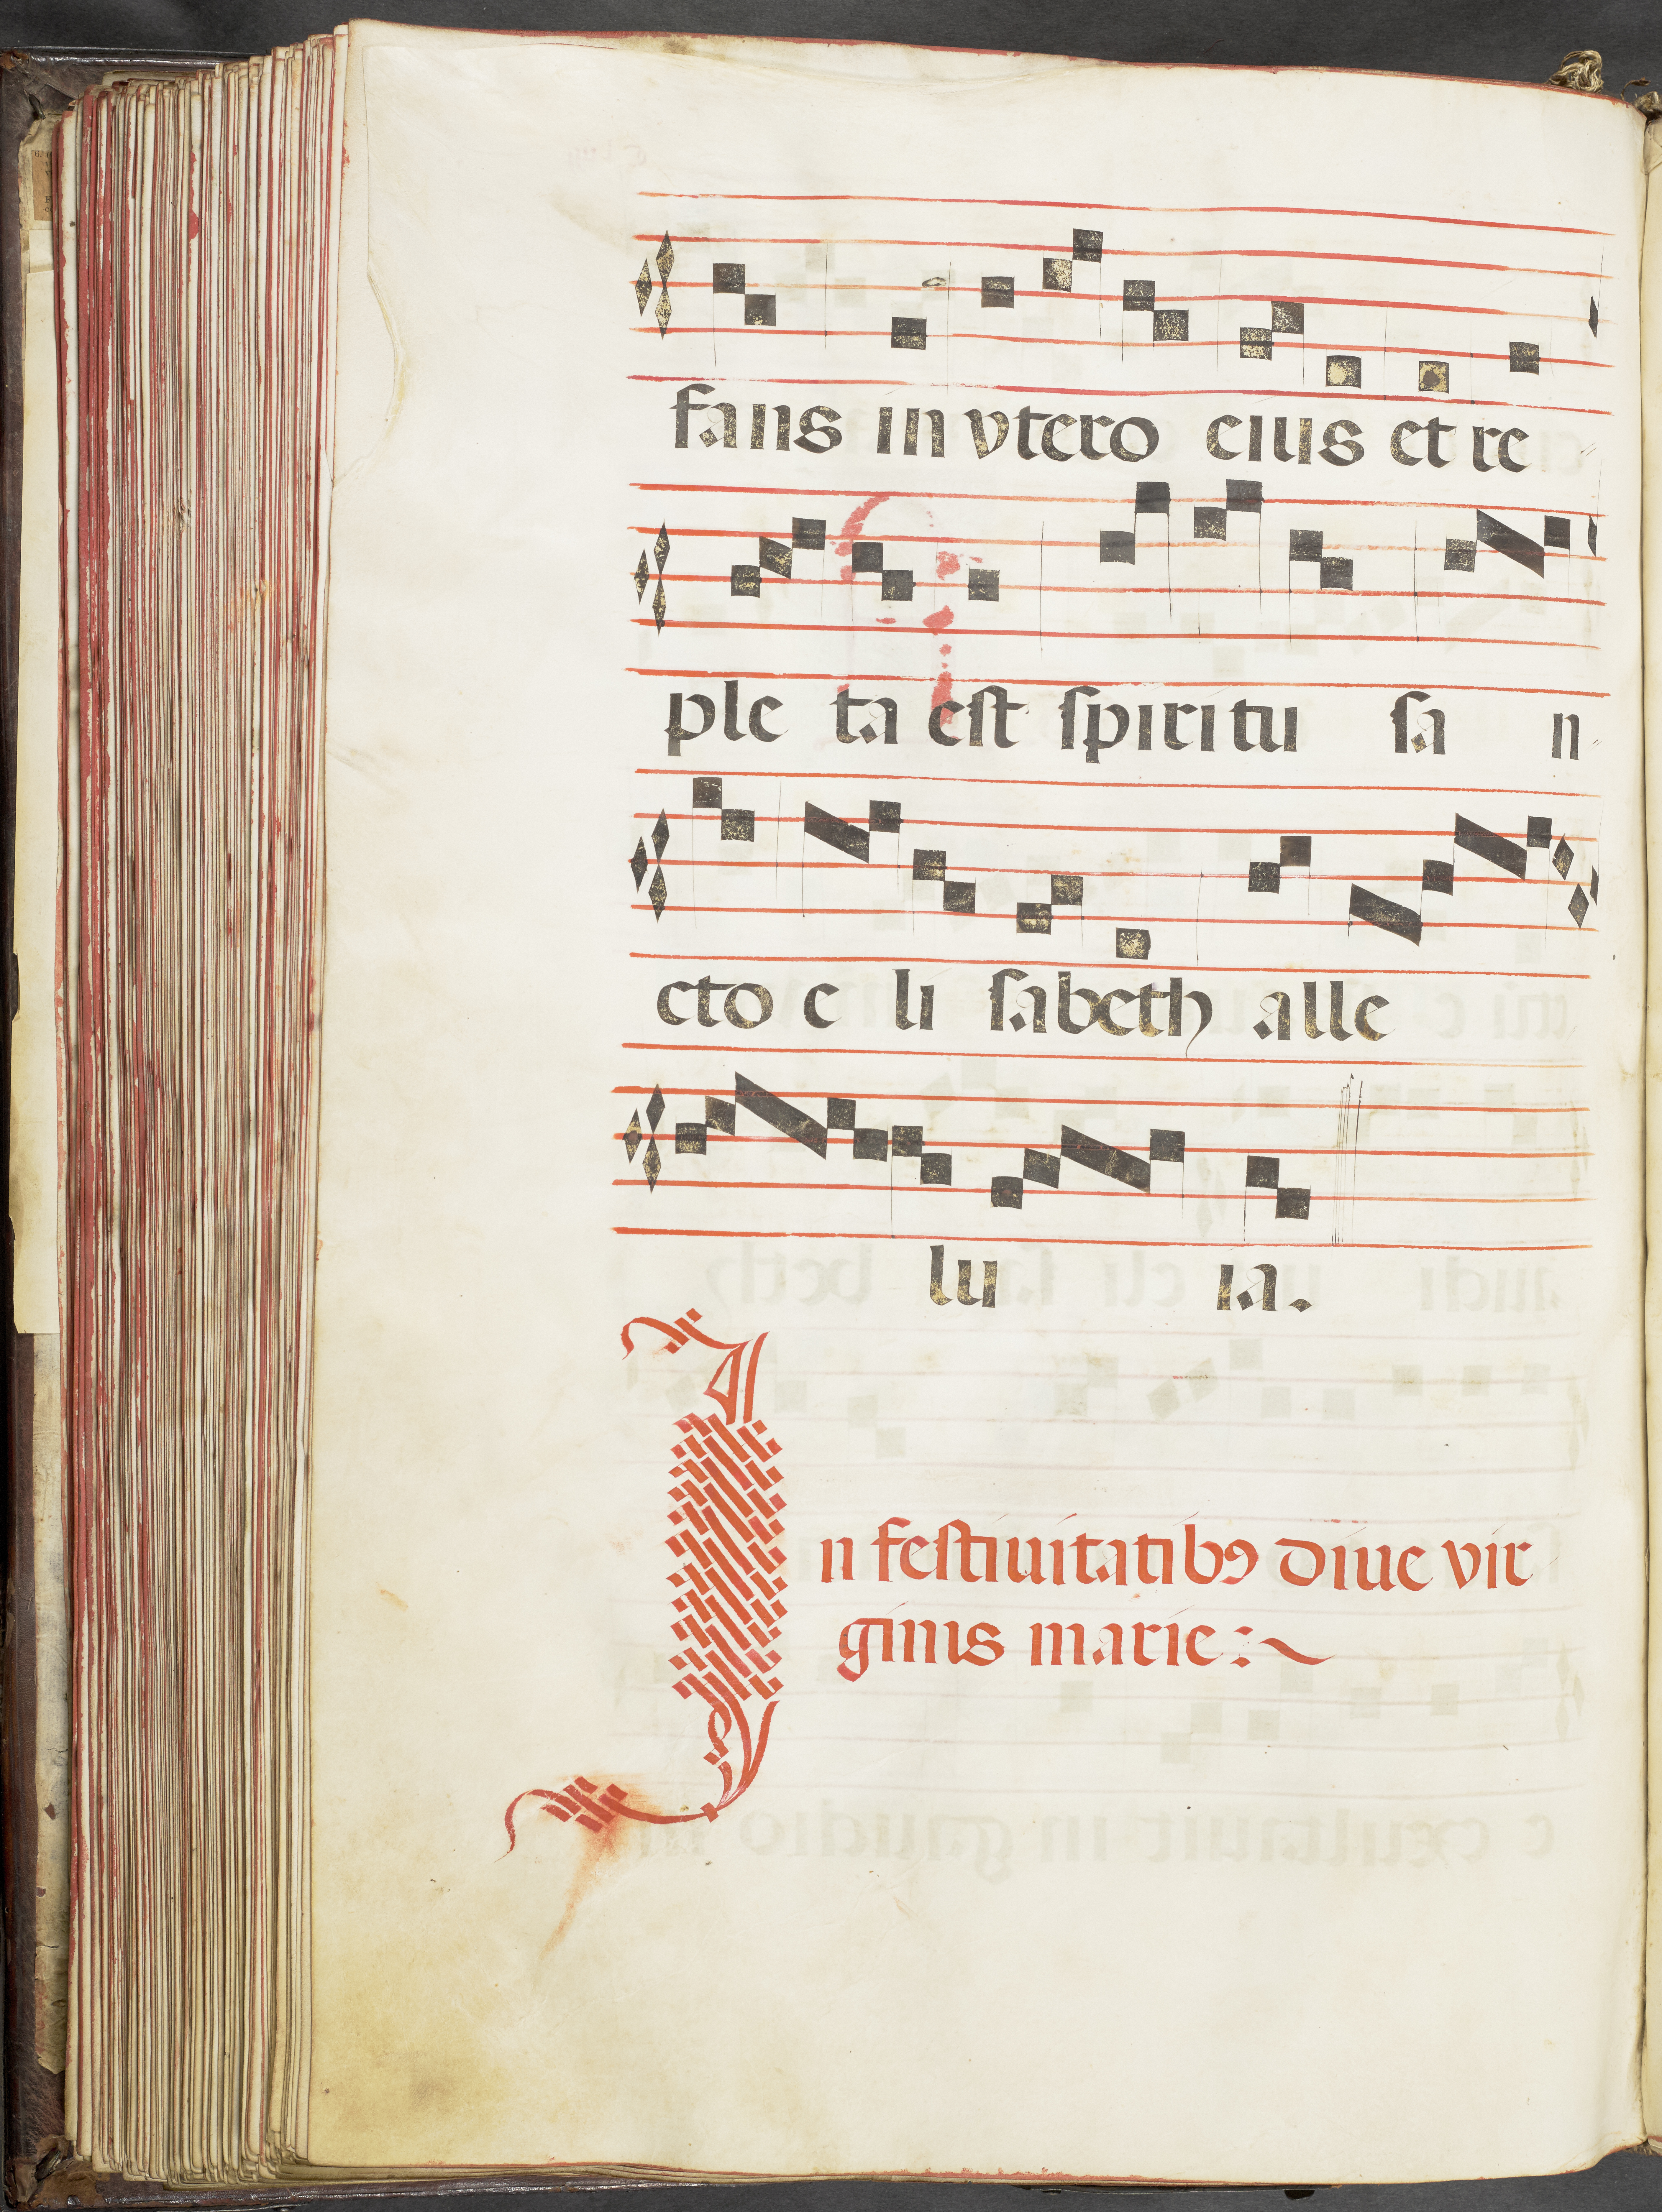 fans in vtero eius et re
ple ta est spiritu sa n
cto e li sabeth alle
lu ia.
In festiuitatibꝰ diue vir
ginis marie:~